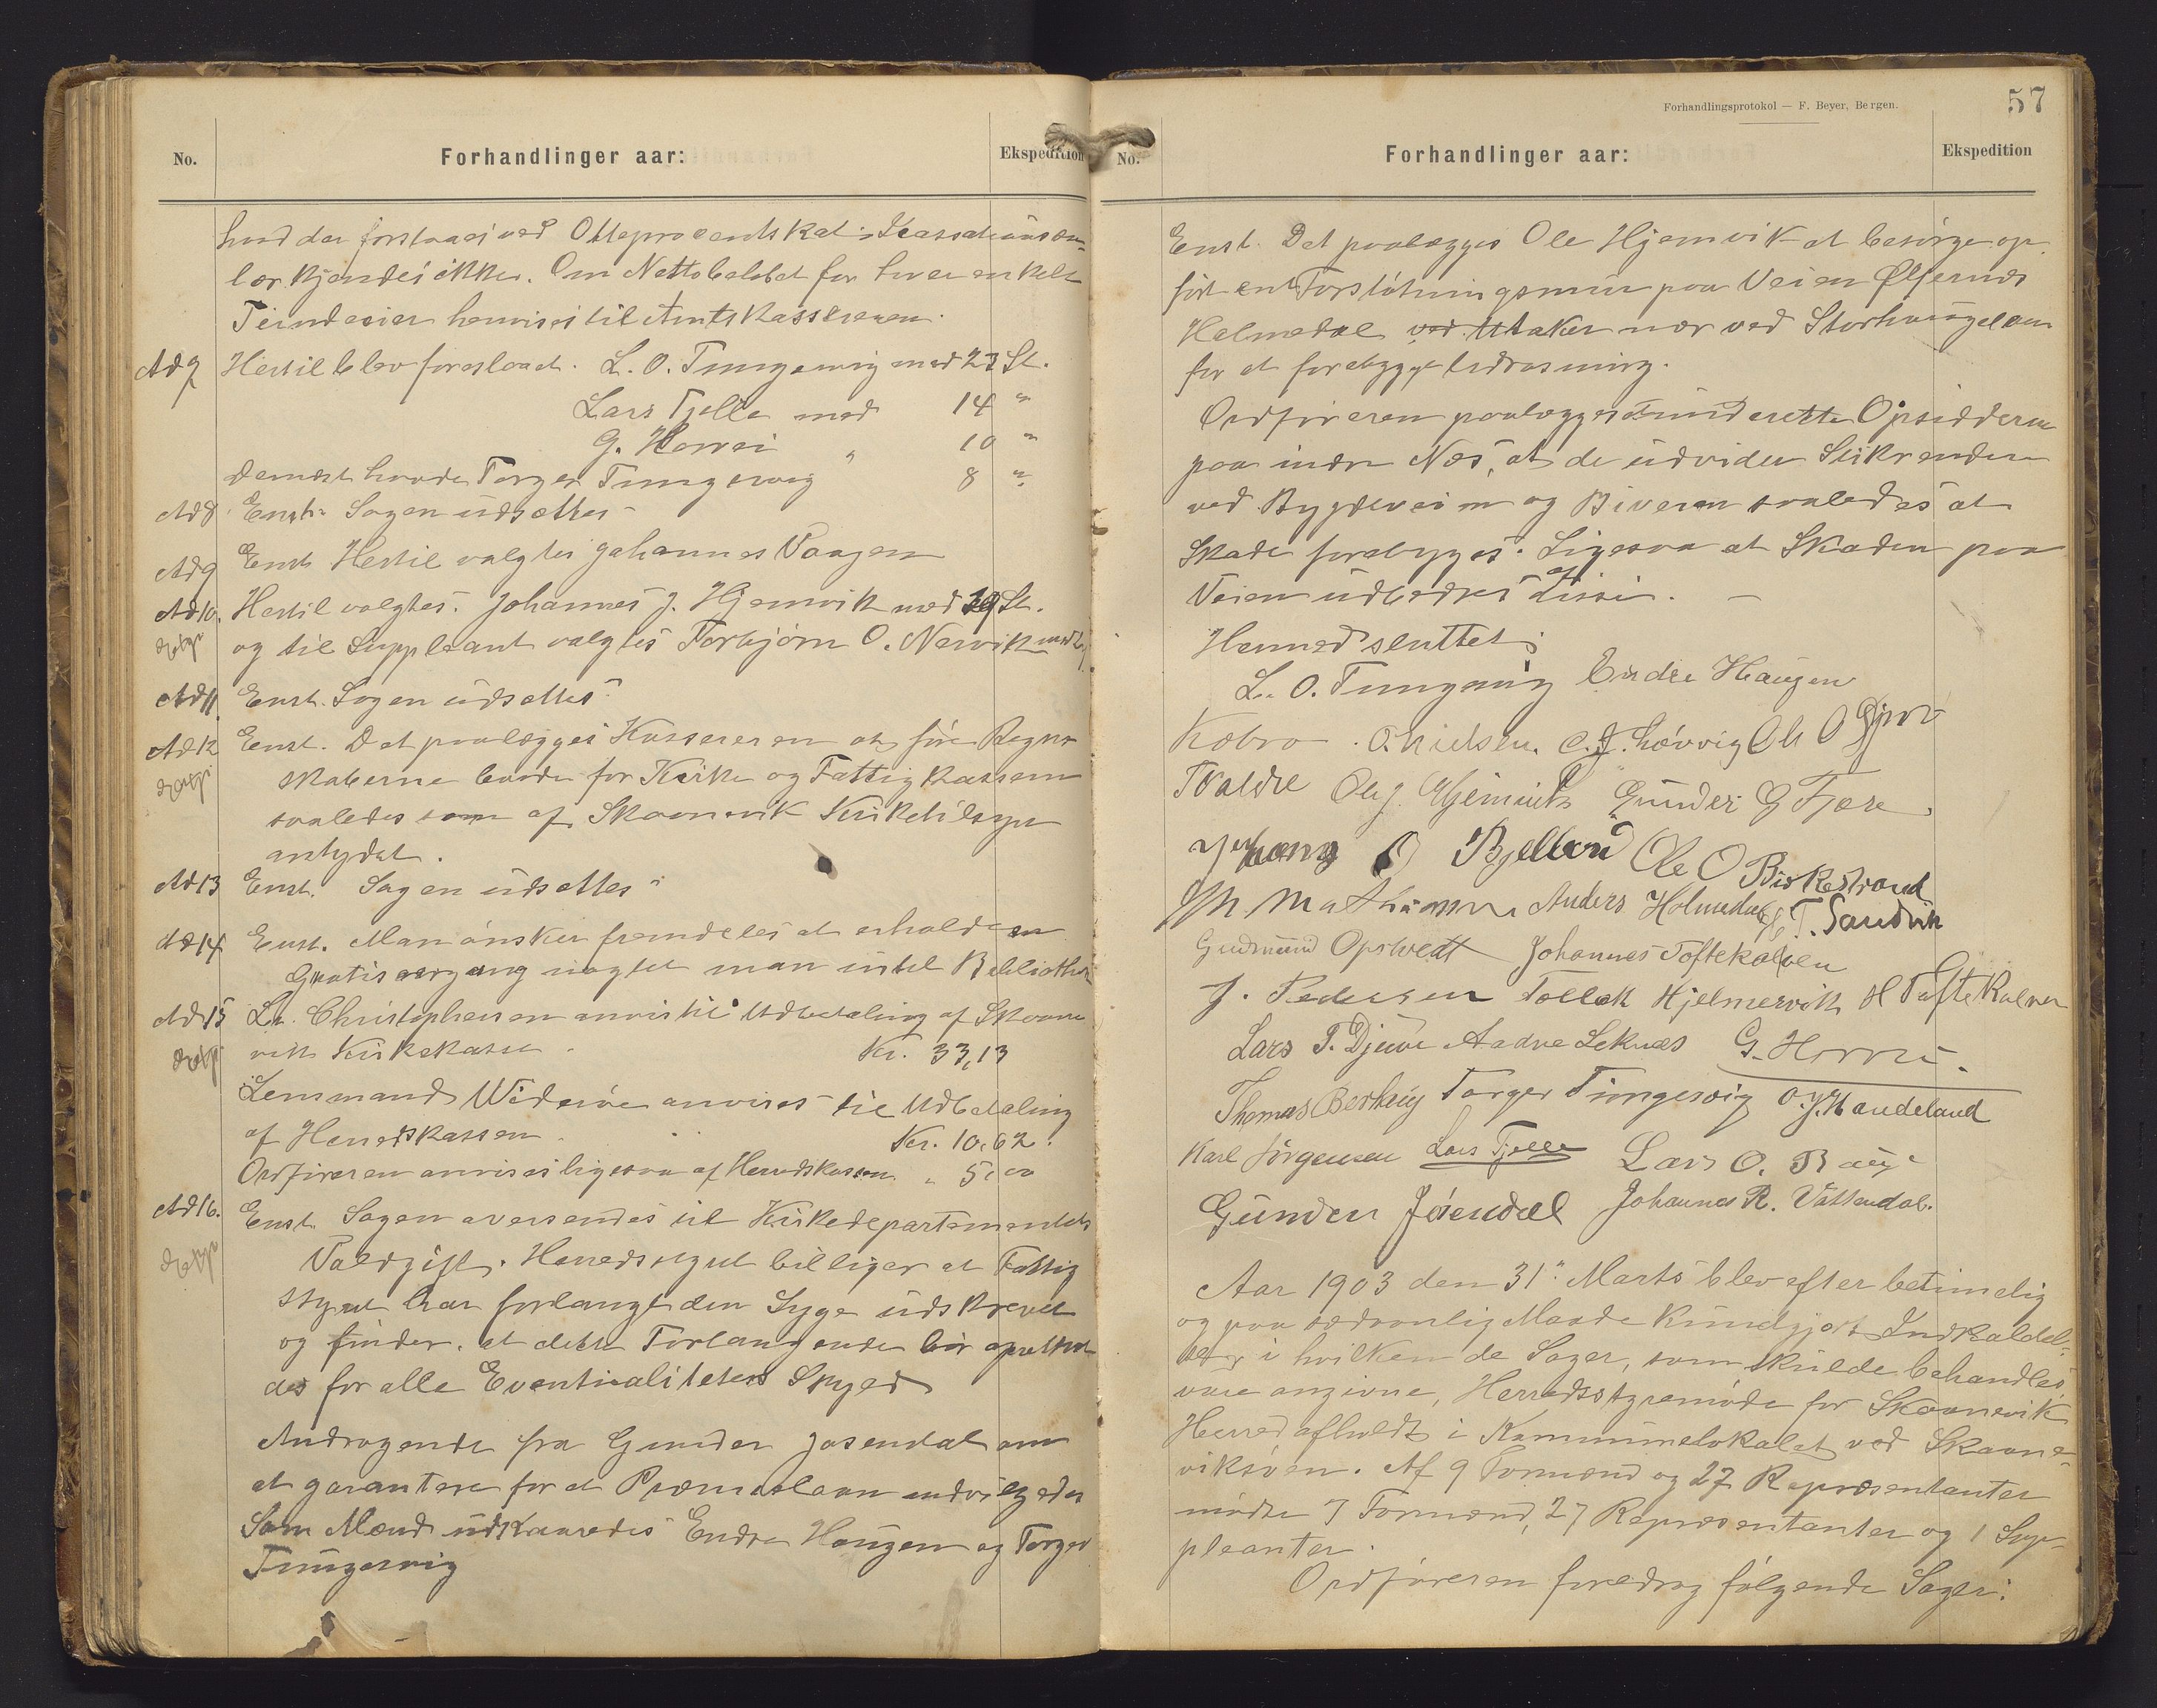 No.
Forhandlinger aar:
Ekspedition
hvad der forstaaes ved Otteprocentskat i
lær kjendes ikke. Om Nettobeløbet for hver enkelt
henvises til Amtskassereren.
Ad 7 Hertil blev foreslaaet. L. O. Tungesvig med 23 St.
Lars Fjelle med 14 "
G. Horvei " 10 "
dernæst havde Torger Tungesvig 8 "
Ad 8 Enst. Sagen udsættes
Ad 9 Enst. Hertil valgtes Johannes Vaagen
Ad 10. Hertil valgtes. Johannes J. Hjemvik med 19 St.
og til Suppleant valgtes Torbjørn O. Nervik med
Ad 11. Enst. Sagen udsættes.
Ad 12 Enst. Det paalægges Kassereren at føre Regn-
skaberne baade for Kirke og Fattigkassen
saaledes som af Skaanevik Kirketilsyn
antydet.
Ad 13 Enst. Sagen udsættes
Ad 14 Enst. Man ønsker fremdeles at erholde en
Gratisaargang
Ad 15 L. Christophersen anvistes til Udbetaling af Skaane-
vik Kirkekasse. Kr. 33,13
Lensmand Widerøe anvises til Udbetaling
af Herredskassen Kr. 10,62.
Ordføreren anvises ligesaa af Herredskassen " 5,00
Ad 16. Enst. Sagen oversendes til Kirkedepartementets
Voldgift. Herredsstyret billiger at Fattig
styret har forlangt den Syge udskrevet
og finder, at dette Forlangende bør opretho-
des for alle Eventualiteters Skyld
Andragende fra Gunder Jøsendal om
at garantere for et Præmielaan andvilgedes
Som Mænd udkaaredes Endre Haugen og Torger
Tungesvig
Forhandlingsprotokol — F. Beyer, Bergen.
57
No.
Forhandlinger aar:
Ekspedition
Enst. Det paalægges Ole Hjemvik at besørge op-
ført en Forstøtningsmur paa Veien Ølfernes
Holmedal ved Utaker nær ved Storhaugelven
for at forebygge Udrasning.
Ordføreren paalægges at underrette Opsidderne
paa indre Næs, at de udvider Stikrenderne
ved Bygdeveien og Biveien saaledes at
Skade forebygges. Ligesaa at Skaden paa
Veien udbedres af disse. —
Hermed sluttet:
L. O. Tungesvig Endre Haugen
Kobro. O. Nielsen. C. J. Løvvig Ole O Gjerv
T Valdre Ole J. Hjemvik Gunder G Fjære.
Johans O Bjelland Ole O Birkestrand
Th Mathiassen Anders Holmedal T. Sandvik
Gudmund Opstvedt Johannes Toftekalven
J. Pedersen Tollak Hjelmervik H Toftekalven
Lars T. Djuve Aadne Leknes G. Horvei.
Thomas Berhug Torger Tungesvig O. J. Handeland
Karl Jørgensen Lars Fjelle Lars O. Bauge
Gunder Jøsendal Johannes R. Vattendal.
Aar 1903 den 31" Marts blev efter betimelig
og paa sædvanlig Maade kundgjort Indkaldel-
se, i hvilken de Sager, som skulde behandles,
vare angivne, Herredsstyremøde for Skaanevik
Herred afholdt i Kommunelokalet ved Skaane-
viksøen. Af 9 Formænd og 27 Repræsentanter
mødte 7 Formænd, 27 Repræsentanter og 1 Sup-
pleanter.
Ordføreren foredrog følgende Sager: